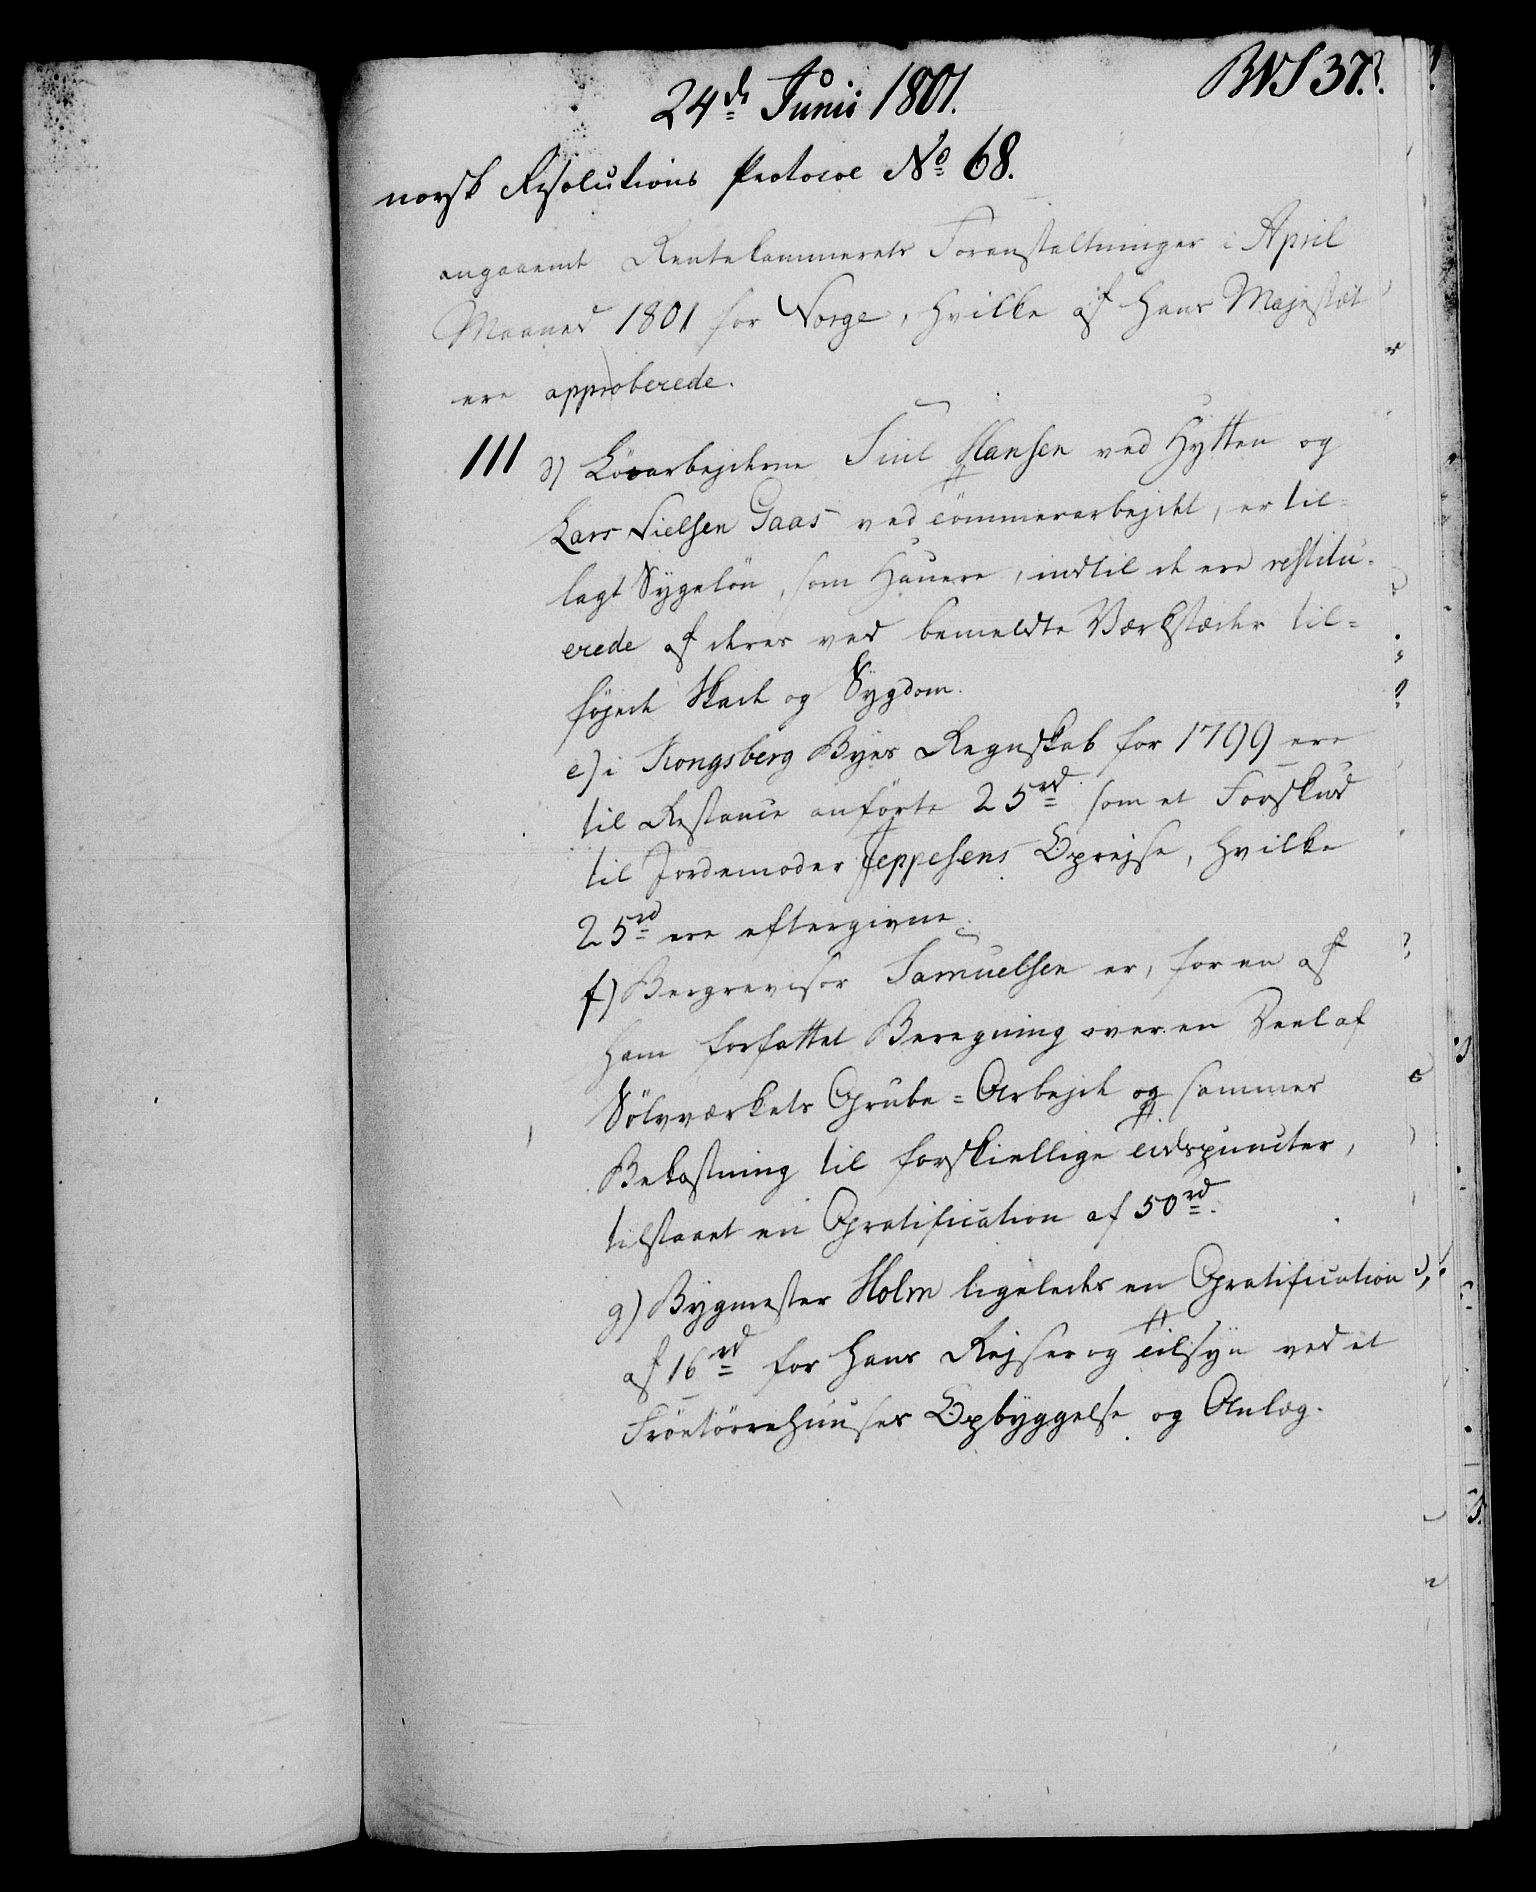 24de Junii 1801.
norsk Resolutions Protocol No 68.
angaaende Rentekammerets Foranstaltninger i April
Maaned 1801 for Norge, hvilke af Hans Majestæt
ere approberede.
111 d) Löearbejderne Hansen ved Hytten og
Lars Nielsen Gaas ved Tömmerarbejdet, er til-
lagt Sygelön, som Hauere, indtil de ere restitu-
erede af deres ved bemeldte Værkstæder til=
föjede Skade og Sygdom.
e) i Kongsberg Byes Regnskab for 1799 ere
til Restance anförte 25rd som et Forskud
til Jordemoder Jeppesens Oprejse, hvilke
25rd ere eftergivne.
f) Bergrevisor Samuelsen er, for en af
ham forfattet Beregning over en Deel af
Sölvværkets Grube=Arbejde og sammes
Bekostning til forskiellige Tidspuncter,
tilstaaet en Gratification af 50rd.
g) Bygmester Holm ligeledes en Gratification
af 16rd for hans Rejser og Tilsyn ved et
Fröetörrehuuses Opbyggelse og Anlæg.